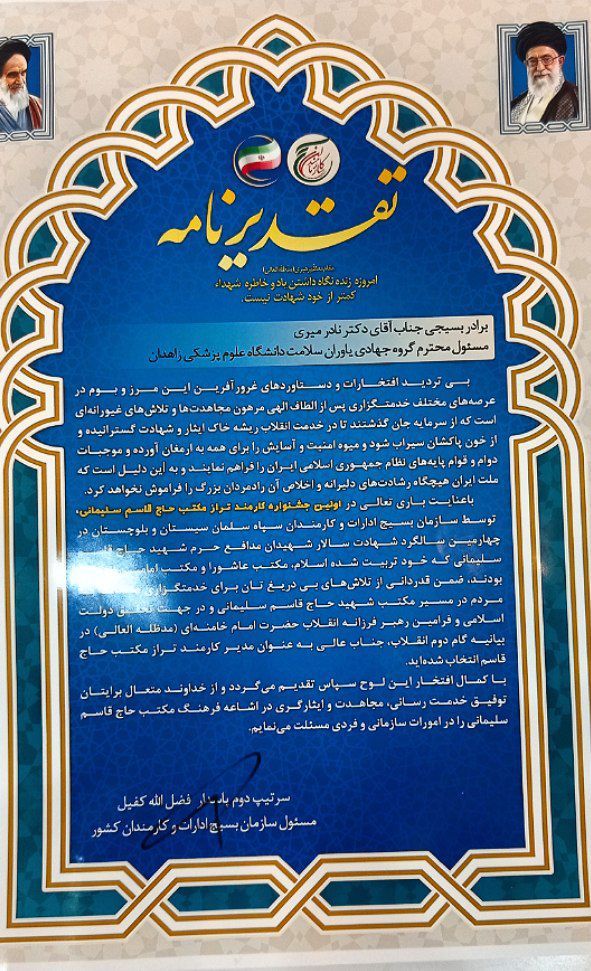 تقدیرنامه
امروزه زنده نگاه داشتن یاد و خاطره شهداء
کمتر از خود شهادت نیست.
برادر بسیجی جناب آقای دکتر نادر میری
مسئول محترم گروه جهادی یاوران سلامت دانشگاه علوم پزشکی زاهدان
بی تردید افتخارات و دستاوردهای غرورآفرین این مرز و بوم در
عرصه‌های مختلف خدمتگزاری پس از الطاف الهی مرهون مجاهدت‌ها و تلاش‌های غیورانه‌ای
است که از سرمایه جان گذشتند تا در خدمت انقلاب ریشه خاک ایثار و شهادت گسترانیده و
از خون پاکشان سیراب شود و میوه امنیت و آسایش را برای همه به ارمغان آورده و موجبات
دوام و قوام پایه‌های نظام جمهوری اسلامی ایران را فراهم نمایند و به این دلیل است که
ملت ایران هیچگاه رشادت‌های دلیرانه و اخلاص آن رادمردان بزرگ را فراموش نخواهد کرد.
باعنایت باری تعالی در اولین جشنواره کارمند تراز مکتب حاج قاسم سلیمانی،
توسط سازمان بسیج ادارات و کارمندان سپاه سلمان سیستان و بلوچستان در
چهارمین سالگرد شهادت سالار شهیدان مدافع حرم شهید حاج
سلیمانی که خود تربیت شده اسلام، مکتب عاشورا و مکتب امام
بودند، ضمن قدردانی از تلاش‌های بی دریغ تان برای خدمتگزاری
مردم در مسیر مکتب شهید حاج قاسم سلیمانی و در جهت تحقق دولت
اسلامی و فرامین رهبر فرزانه انقلاب حضرت امام خامنه‌ای (مدظله العالی) در
بیانیه گام دوم انقلاب، جناب عالی به عنوان مدیر کارمند تراز مکتب حاج
قاسم انتخاب شده‌اید.
با کمال افتخار این لوح سپاس تقدیم می‌گردد و از خداوند متعال برایتان
توفیق خدمت رسانی، مجاهدت و ایثارگری در اشاعه فرهنگ مکتب حاج قاسم
سلیمانی را در امورات سازمانی و فردی مسئلت می‌نمایم.
سرتیپ دوم پاسدار فضل الله کفیل
مسئول سازمان بسیج ادارات و کارمندان کشور